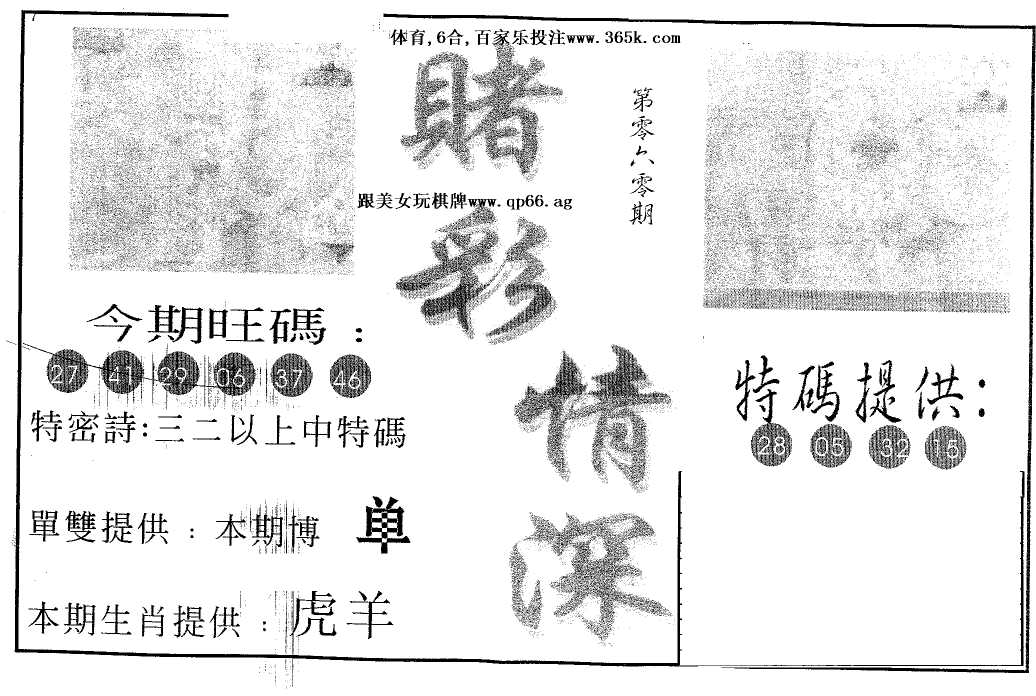 体育,6合,百家乐投注www.365k.com
賭彩情深
第零六零期
跟美女玩棋牌www.qp66.ag
今期旺碼：
27 41 29 06 37 46
特密詩:三二以上中特碼
單雙提供：本期博 单
本期生肖提供：虎羊
特碼提供:
28 05 32 15